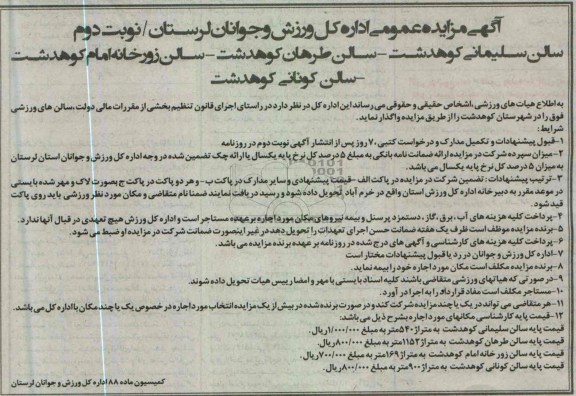 آگهی مزایده عمومی اداره کل ورزش و جوانان لرستان / نوبت دوم
سالن سلیمانی کوهدشت – سالن طرهان کوهدشت – سالن زورخانه امام کوهدشت
– سالن کونانی کوهدشت
به اطلاع هیات های ورزشی، اشخاص حقیقی و حقوقی می رساند این اداره کل در نظر دارد در راستای اجرای قانون تنظیم بخشی از مقررات مالی دولت، سالن های ورزشی
فوق را در شهرستان کوهدشت را از طریق مزایده واگذار نماید.
شرایط:
۱- قبول پیشنهادات و تکمیل مدارک و درخواست کتبی ۷ روز پس از انتشار آگهی نوبت دوم در روزنامه
۲- میزان سپرده شرکت در مزایده ارائه ضمانت نامه بانکی به مبلغ ۵ درصد کل نرخ پایه یکسال یا ارائه چک تضمین شده در وجه اداره کل ورزش و جوانان استان لرستان
به میزان ۵ درصد کل نرخ پایه یکسال می باشد.
۳- ترتیب پیشنهادات: تضمین شرکت در مزایده در پاکت الف - قیمت پیشنهادی و سایر مدارک در پاکت ب - و هر دو پاکت در پاکت ج بصورت لاک و مهر شده بایستی
در موعد مقرر به دبیرخانه اداره کل ورزش استان واقع در خرم آباد تحویل داده شود و رسید دریافت نمایند ضمنا نام متقاضی و مکان مورد نظر ورزشی باید روی پاکت
قید شود.
۴- پرداخت کلیه هزینه های آب، برق، گاز، دستمزد پرسنل و بیمه نیروهای مکان مورد اجاره بر عهده مستاجر است و اداره کل ورزش هیچ تعهدی در قبال آنها ندارد.
۵- برنده مزایده موظف است ظرف یک هفته ضمانت حسن اجرای تعهدات را تحویل دهد در غیر اینصورت ضمانت شرکت در مزایده او ضبط می شود.
۶- پرداخت کلیه هزینه های کارشناسی و آگهی های درج شده در روزنامه بر عهده برنده مزایده می باشد.
۷- اداره کل ورزش و جوانان در رد یا قبول پیشنهادات مختار است
۸- برنده مزایده مکلف است مکان مورد اجاره خود را بیمه نماید.
۹- در صورتی که هیاتهای ورزشی متقاضی باشند کلیه اسناد بایستی با مهر و امضا رییس هیات تحویل داده شوند.
۱۰- مستاجر مکلف است مفاد قرارداد را به اجرا در آورد.
۱۱- هر متقاضی می تواند در یک یا چند مزایده شرکت کند و در صورت برنده شده در بیش از یک مزایده انتخاب مورد اجاره در خصوص یک یا چند مکان با اداره کل می باشد.
۱۲- قیمت پایه کارشناسی مکانهای مورد اجاره بشرح ذیل می باشد:
قیمت پایه سالن سلیمانی کوهدشت به متراژ ۵۴۰ متر به مبلغ ۱/۰۰۰/۰۰۰ ریال.
قیمت پایه سالن طرهان کوهدشت به متراژ ۱۱۵۲ متر به مبلغ ۸۰۰/۰۰۰ ریال.
قیمت پایه سالن زورخانه امام کوهدشت به متراژ ۱۶۹ متر به مبلغ ۷۰۰/۰۰۰ ریال.
قیمت پایه سالن کونانی کوهدشت به متراژ ۹۰۰ متر به مبلغ ۸۰۰/۰۰۰ ریال.
کمیسیون ماده ۸۸ اداره کل ورزش و جوانان لرستان